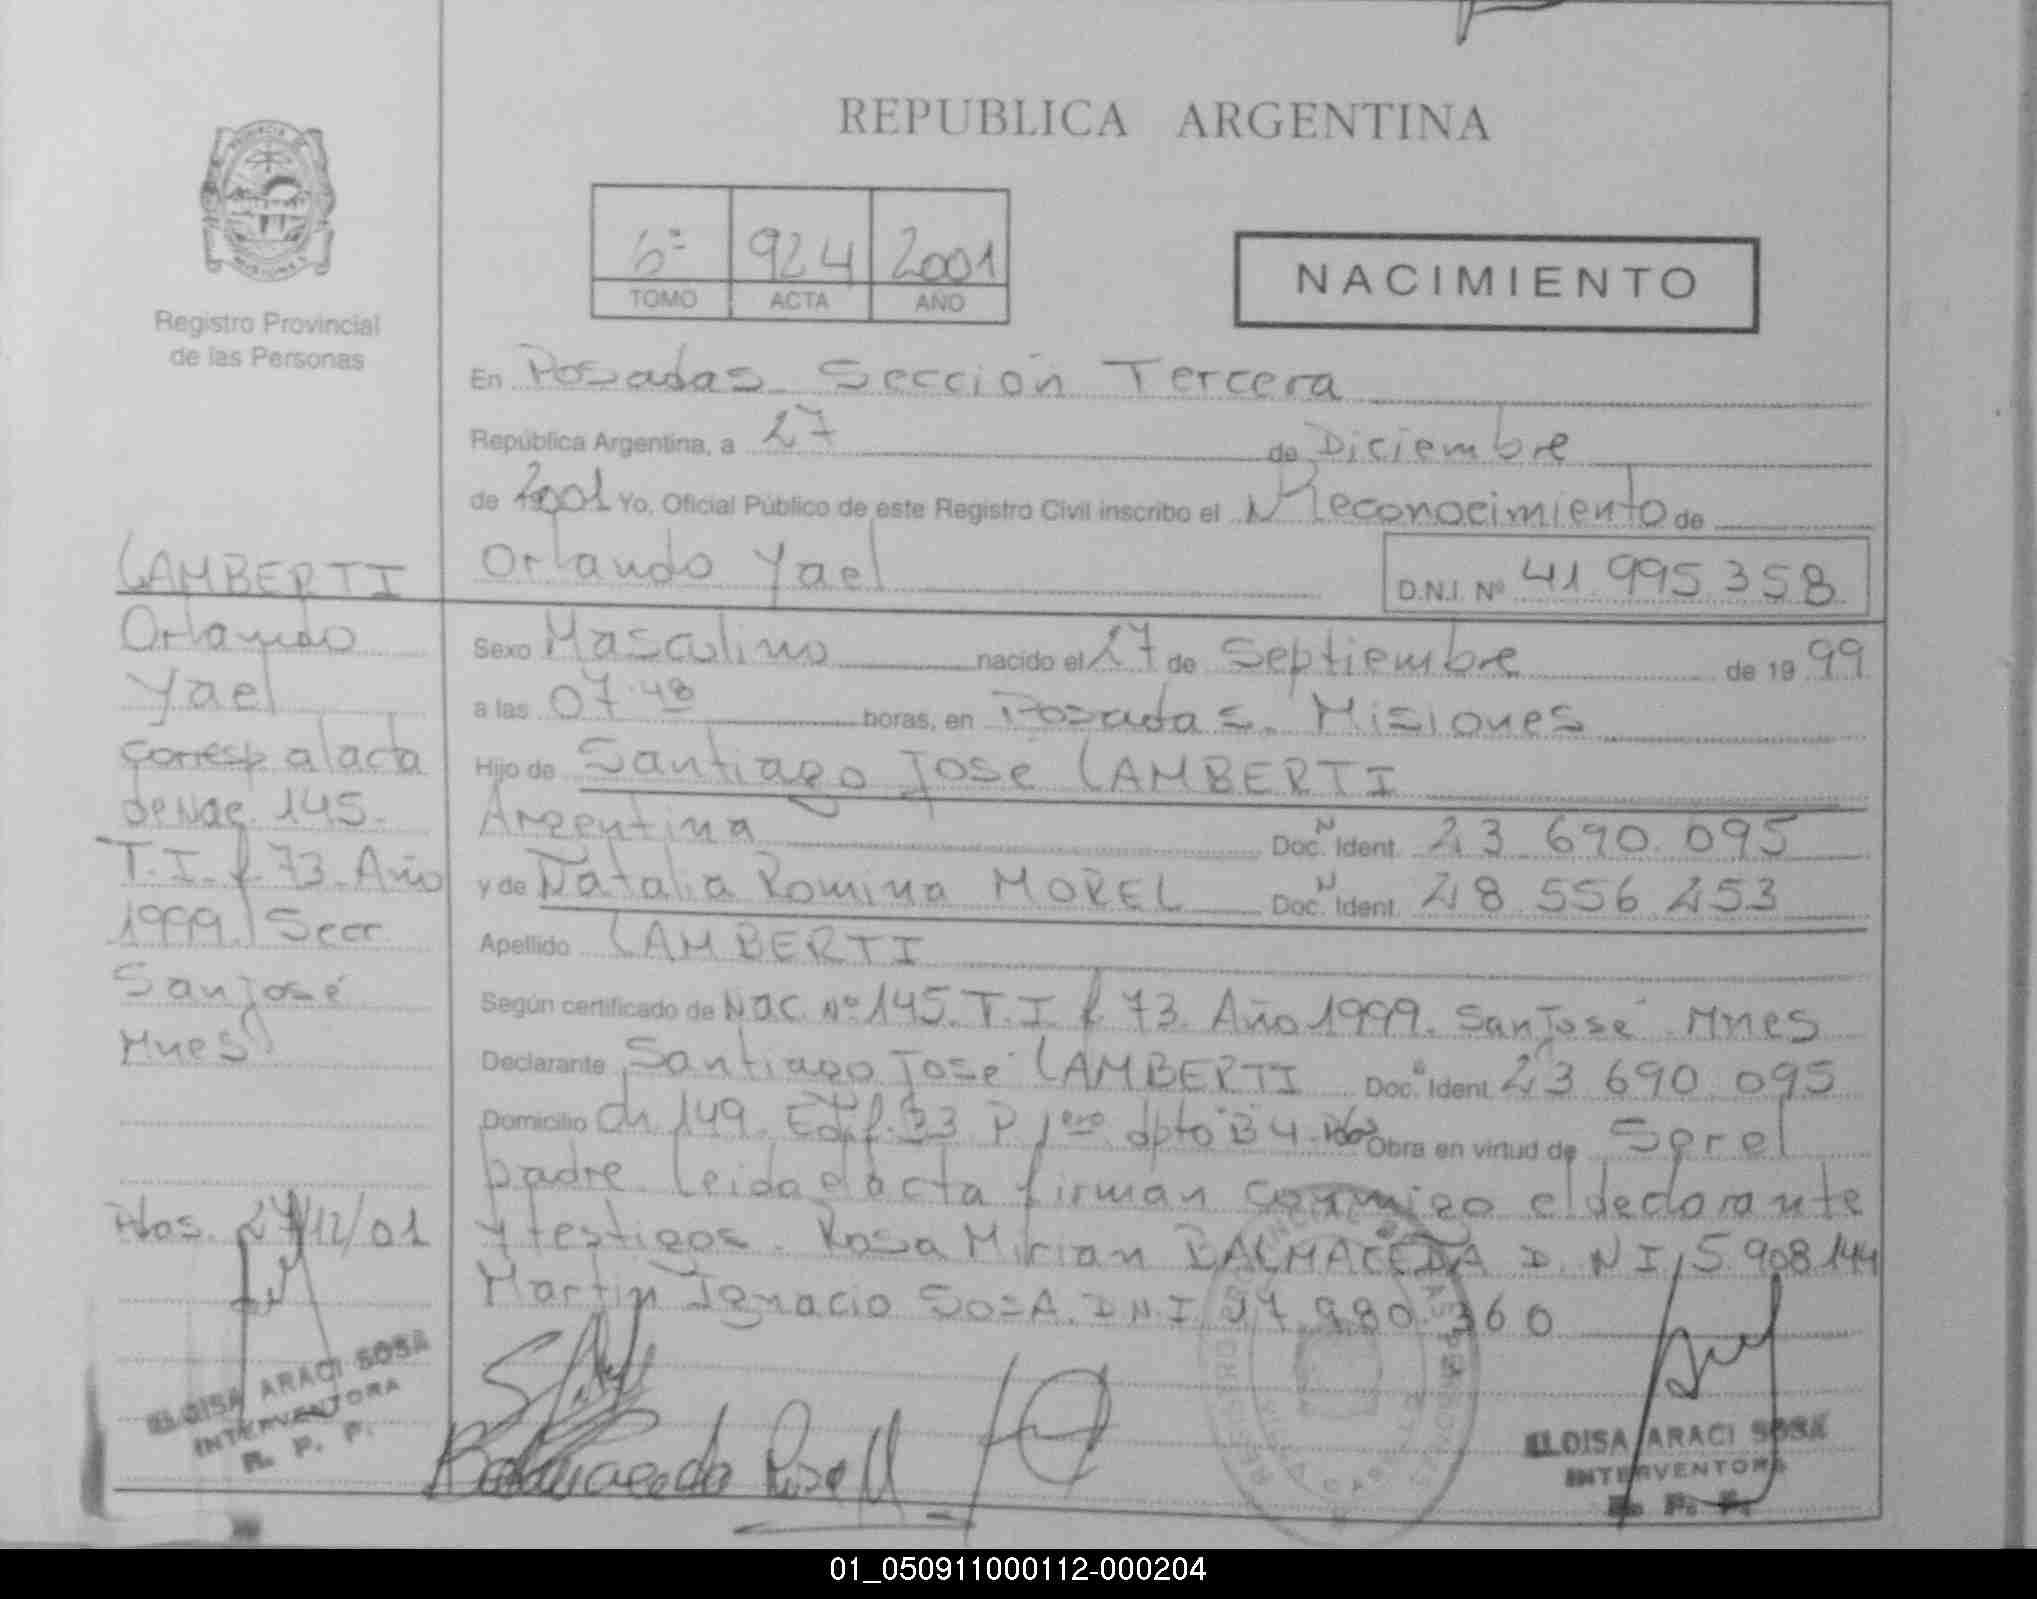 REPUBLICA ARGENTINA
6º 924 2001
TOMO ACTA AÑO
NACIMIENTO
Registro Provincial
de las Personas
En Posadas Sección Tercera
República Argentina, a 27 de Diciembre
de 2001 Yo, Oficial Público de este Registro Civil inscribo el Reconocimiento de
Orlando Yael D.N.I. Nº 41 995 358
Sexo Masculino nacido el 27 de Septiembre de 19 99
a las 07.48 horas, en Posadas. Misiones
Hijo de Santiago José LAMBERTI
Argentina Doc. Ident. 23 690.095
y de Natalia Romina MOREL Doc. Ident. 28 556 253
Apellido LAMBERTI
Según certificado de Nac. Nº 145. T.I. f 73. Año 1999. San José Mnes
Declarante Santiago José LAMBERTI Doc. Ident. 23 690 095
Domicilio Ch 149. Edif. 33 P 1ero dpto B 4. Pdas Obra en virtud de Ser el
padre. Leida el acta firman conmigo el declarante
y testigos. Rosa Mirian BALMACEDA D.N.I 5.908.144
Martin Ignacio SOSA. D.N.I 17.980.360
LAMBERTI
Orlando
Yael
corresp al acta
de Nac. 145.
T.I. f 73. Año
1999. Secc
San José
Mnes
Pdas. 27/12/01
ELOISA ARACI SOSA
INTERVENTORA
R. P. P.
Balmaceda Rosa M
ELOISA ARACI SOSA
INTERVENTORA
R. P. P.
01_050911000112-000204